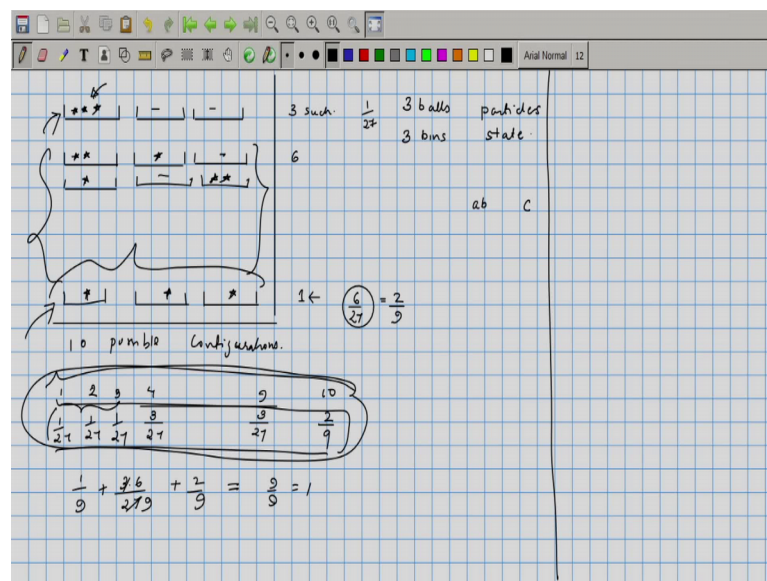 Arial Normal 12
*** - - 3 such. 1/27 3 balls particles
3 bins state.
** * - 6
* - **
ab c
* * * 1← 6/27 = 2/9
10 possible configurations.
1 2 3 4 9 10
1/27 1/27 1/27 3/27 3/27 2/9
1/9 + 3.6/279 + 2/9 = 9/9 = 1